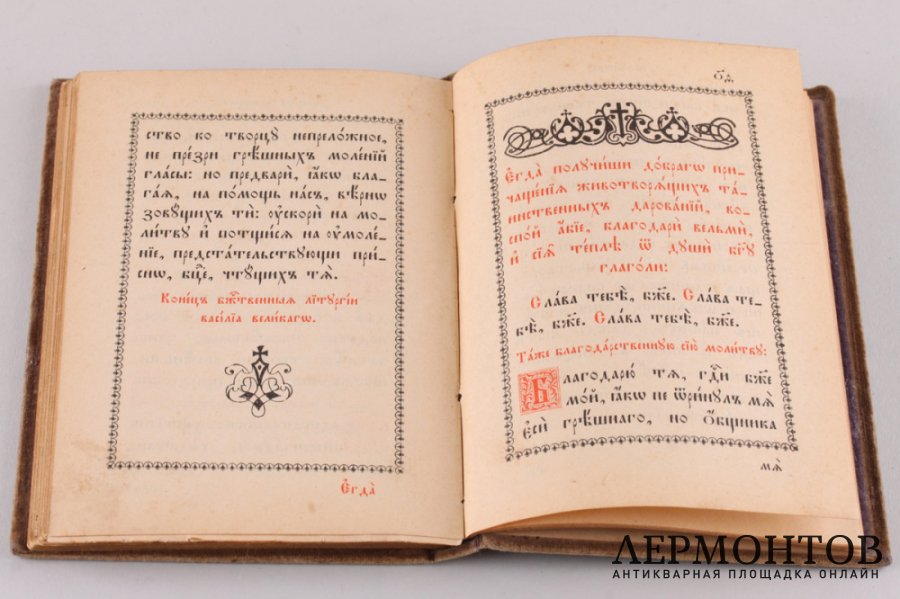 ство ко творцꙋ̀ непрело́жное,
не пре́зри грѣ́шныхъ моле́нїй
гла́сы: но предварѝ, ꙗ҆́кѡ бла-
га́ѧ, на по́мощь на́съ, вѣ́рнѡ
зовꙋ́щихъ тѝ: ᲂу҆скорѝ на мо-
ли́твꙋ и҆ потщи́сѧ на ᲂу҆моле́-
нїе, предста́тельствꙋющи при́-
снѡ, бц҃е, чтꙋ́щихъ тѧ̀.
Коне́цъ бж҃е́ственныѧ лїтꙋргі́и
васі́лїа вели́кагѡ.
Є҆гда̀
Є҆гда̀ полꙋчи́ши до́брагѡ при-
чаще́нїѧ животворѧ́щихъ та́-
инственныхъ дарова́нїй, во-
спо́й а҆́бїе, благодарѝ вельмѝ,
и҆ сїѧ̑ те́плѣ ѿ дꙋшѝ бг҃ꙋ
глаго́ли:
Сла́ва тебѣ̀, бж҃е. Сла́ва те-
бѣ̀, бж҃е. Сла́ва тебѣ̀, бж҃е.
Та́же благода́рственнꙋю сїю̀ моли́твꙋ:
Благодарю́ тѧ, гдⷭ҇и бж҃е
мо́й, ꙗ҆́кѡ не ѿри́нꙋлъ мѧ̀
є҆сѝ грѣ́шнаго, но ѻ҆́бщника
мѧ̀
ЛЕРМОНТОВ
АНТИКВАРНАЯ ПЛОЩАДКА ОНЛАЙН